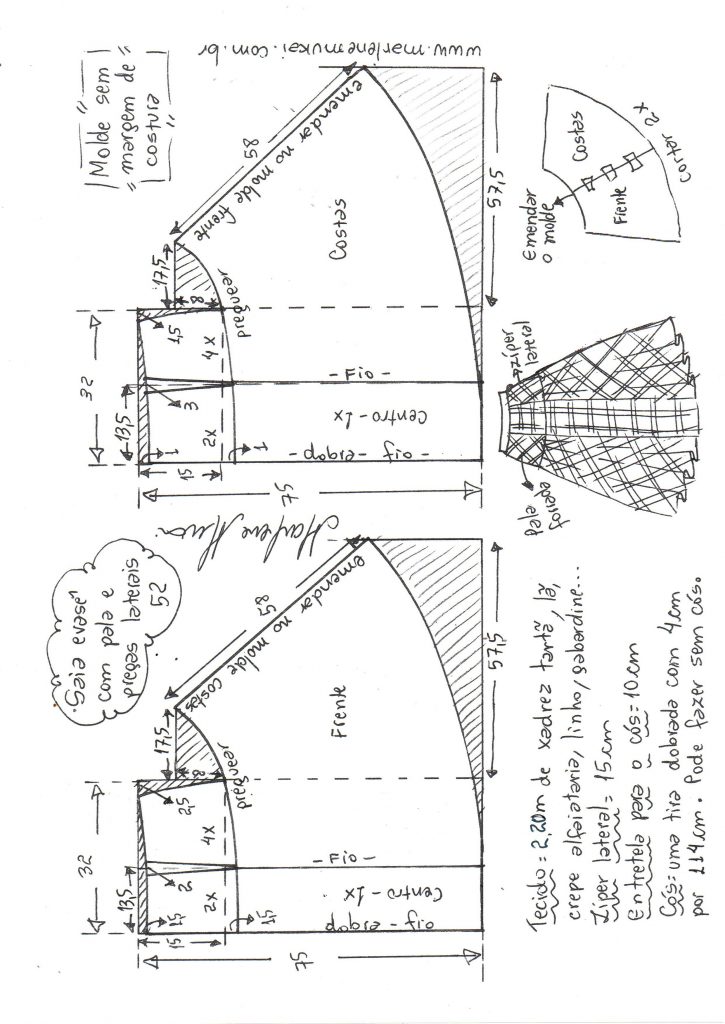 Saia evasê
com pala e
pregas laterais
52
"Molde sem
margem de
costura"
32
13,5
15
1,5
2
2,5
2x
4x
1,5
8
17,5
preguear
75
58
emendar no molde costas
Frente
- Fio -
Centro - 1x
dobra - fio
57,5
Marlene Mukai
32
13,5
15
1
3
1,5
2x
4x
1
8
17,5
preguear
75
58
emendar no molde frente
Costas
- Fio -
Centro - 1x
- dobra - fio -
57,5
www.marlenemukai.com.br
Tecido = 2,20m de xadrez tartã, lã,
crepe alfaiataria, linho, gabardine...
Zíper lateral = 15cm
Entretela para o cós = 10cm
Cós: uma tira dobrada com 4cm
por 114cm. Pode fazer sem cós.
pala
forrada
zíper
lateral
Emendar
o molde
Frente
Costas
Cortar 2x